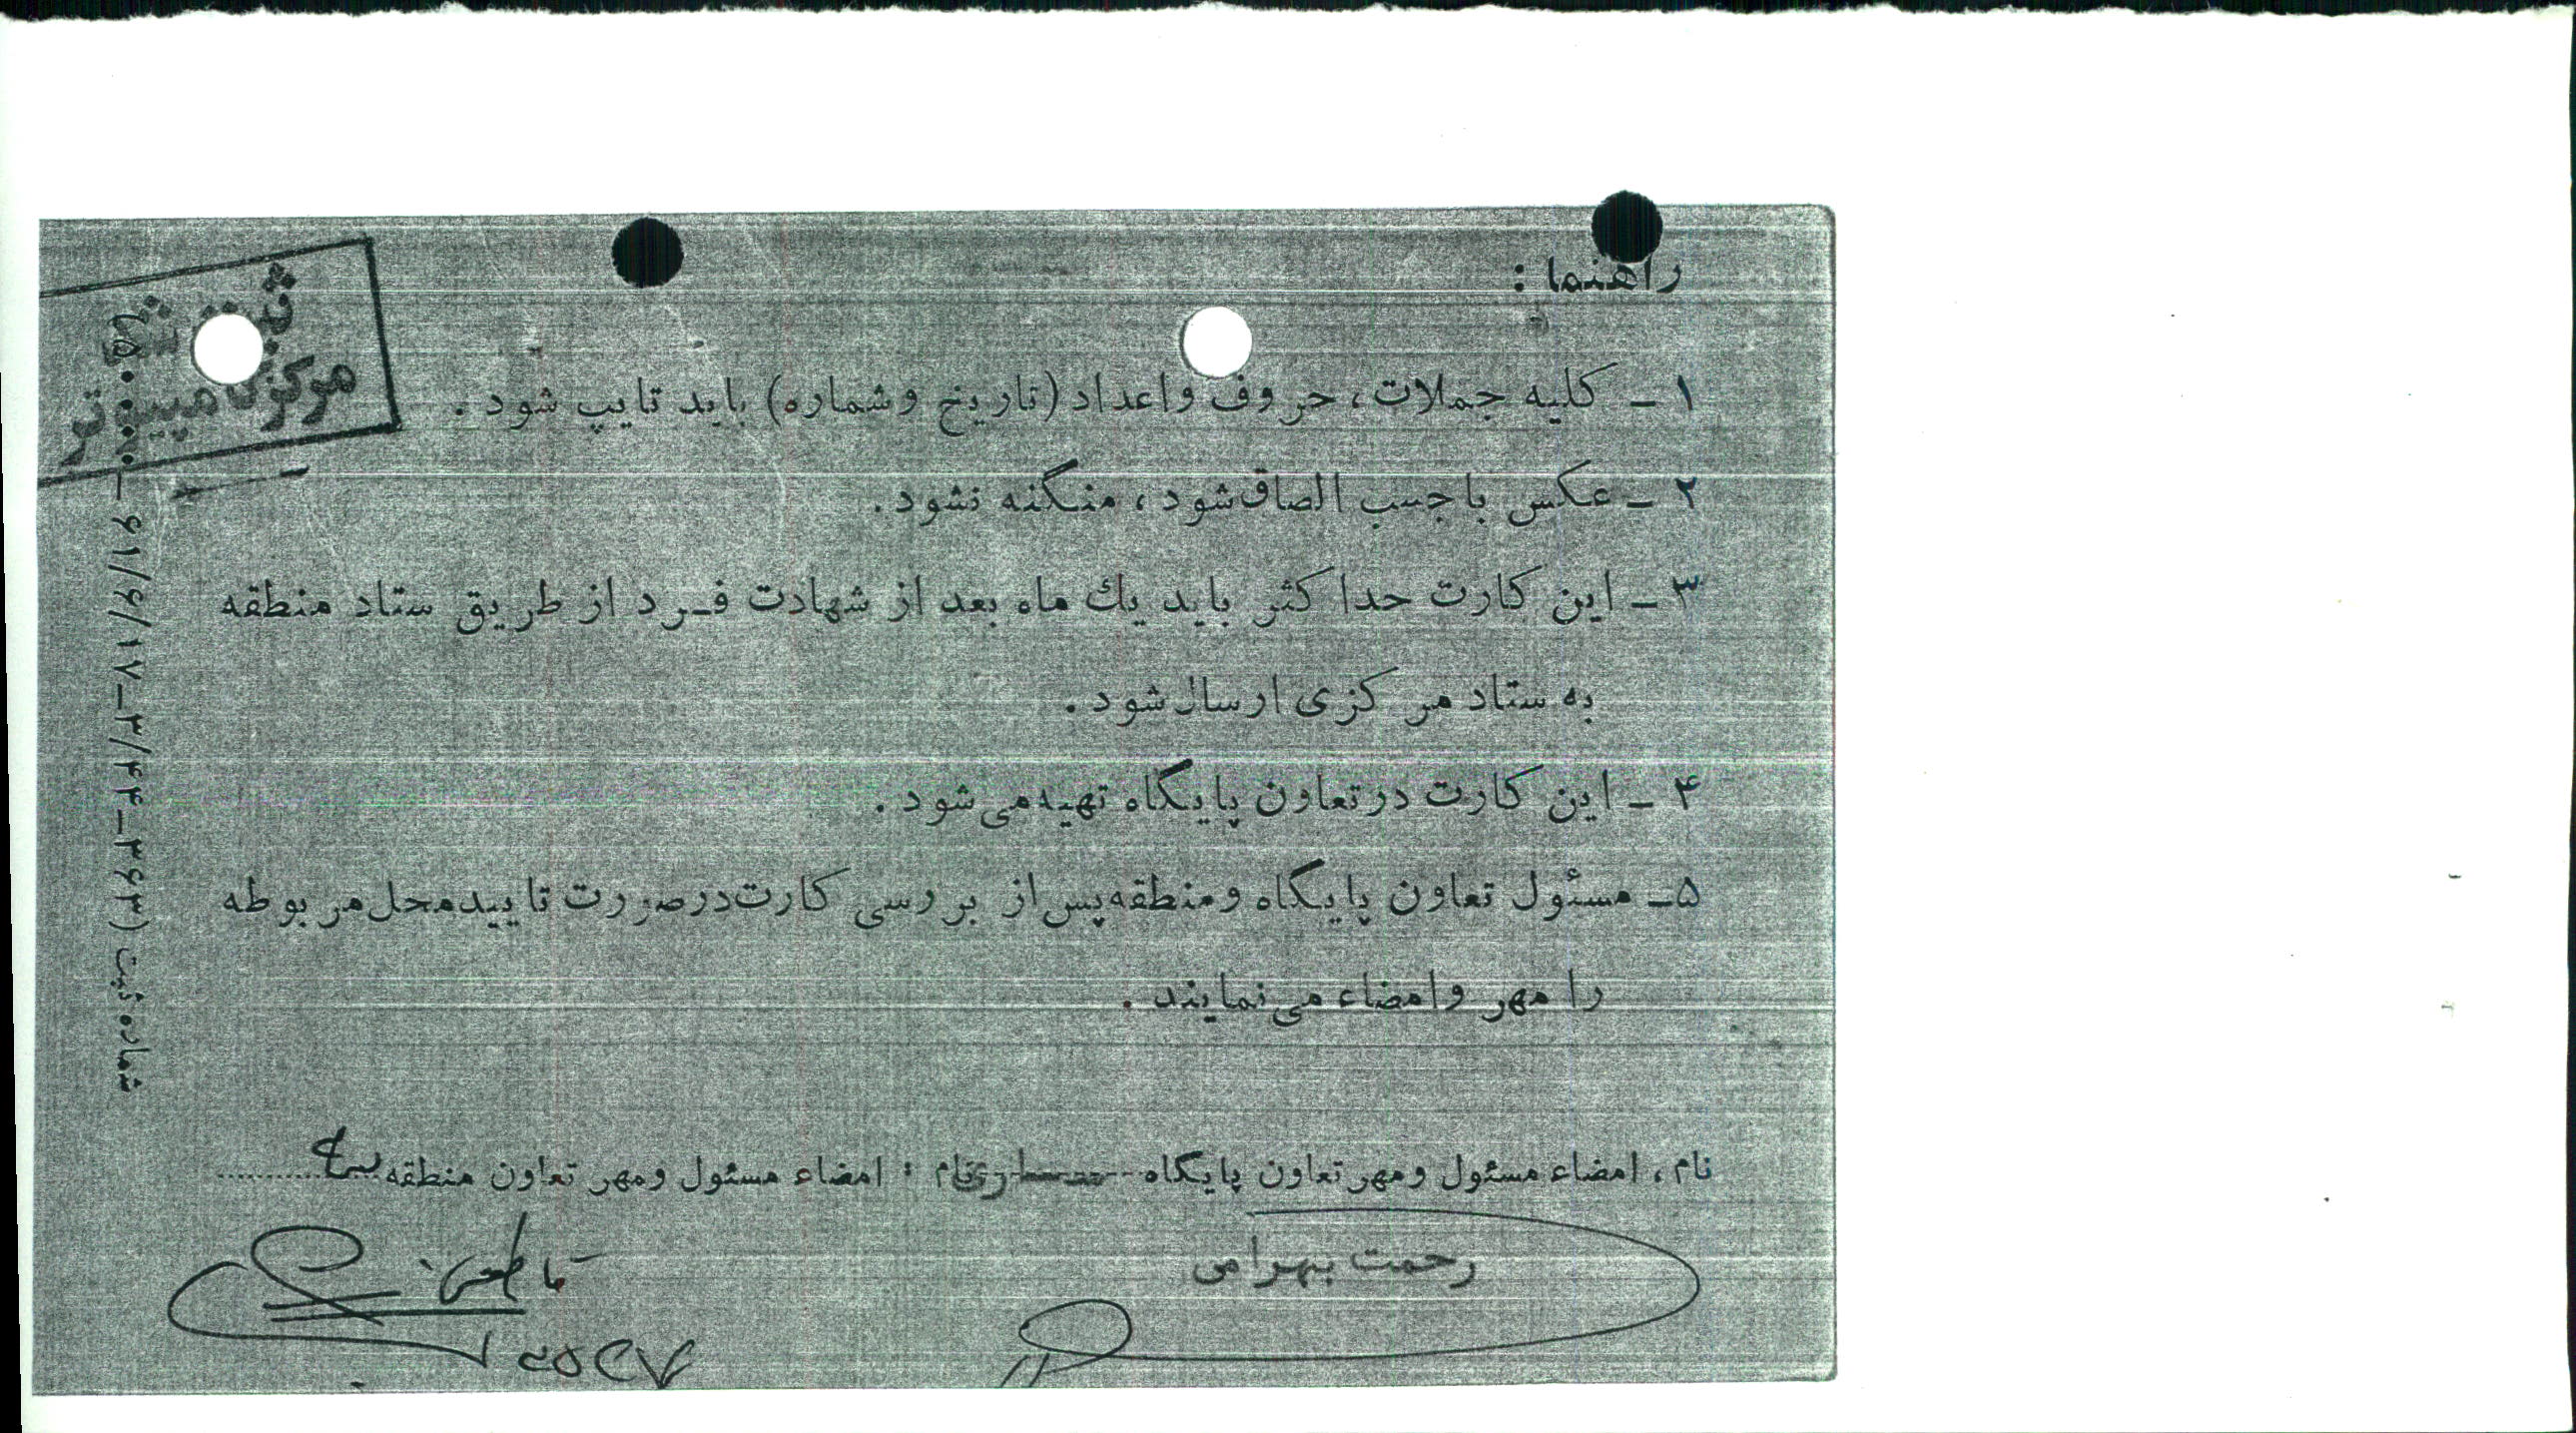 راهنما :
ثبت شد
مرکز کامپیوتر
۱ - کلیه جملات، حروف واعداد (تاریخ وشماره) باید تایپ شود .
۲ - عکس باچسب الصاق شود ، منگنه نشود .
۳ - این کارت حداکثر باید یك ماه بعد از شهادت فرد از طریق ستاد منطقه
به ستاد مرکزی ارسال شود .
۴ - این کارت درتعاون پایگاه تهیه می شود .
۵ - مسئول تعاون پایگاه ومنطقه پس از بررسی کارت درصورت تایید محل مربوطه
را مهر وامضاء می نمایند .
شماره ثبت (۳۶۳-۳/۴۴-۶۱/۶/۱۷
نام ، امضاء مسئول ومهر تعاون پایگاه
نام : امضاء مسئول ومهر تعاون منطقه
رحمت بهرامی